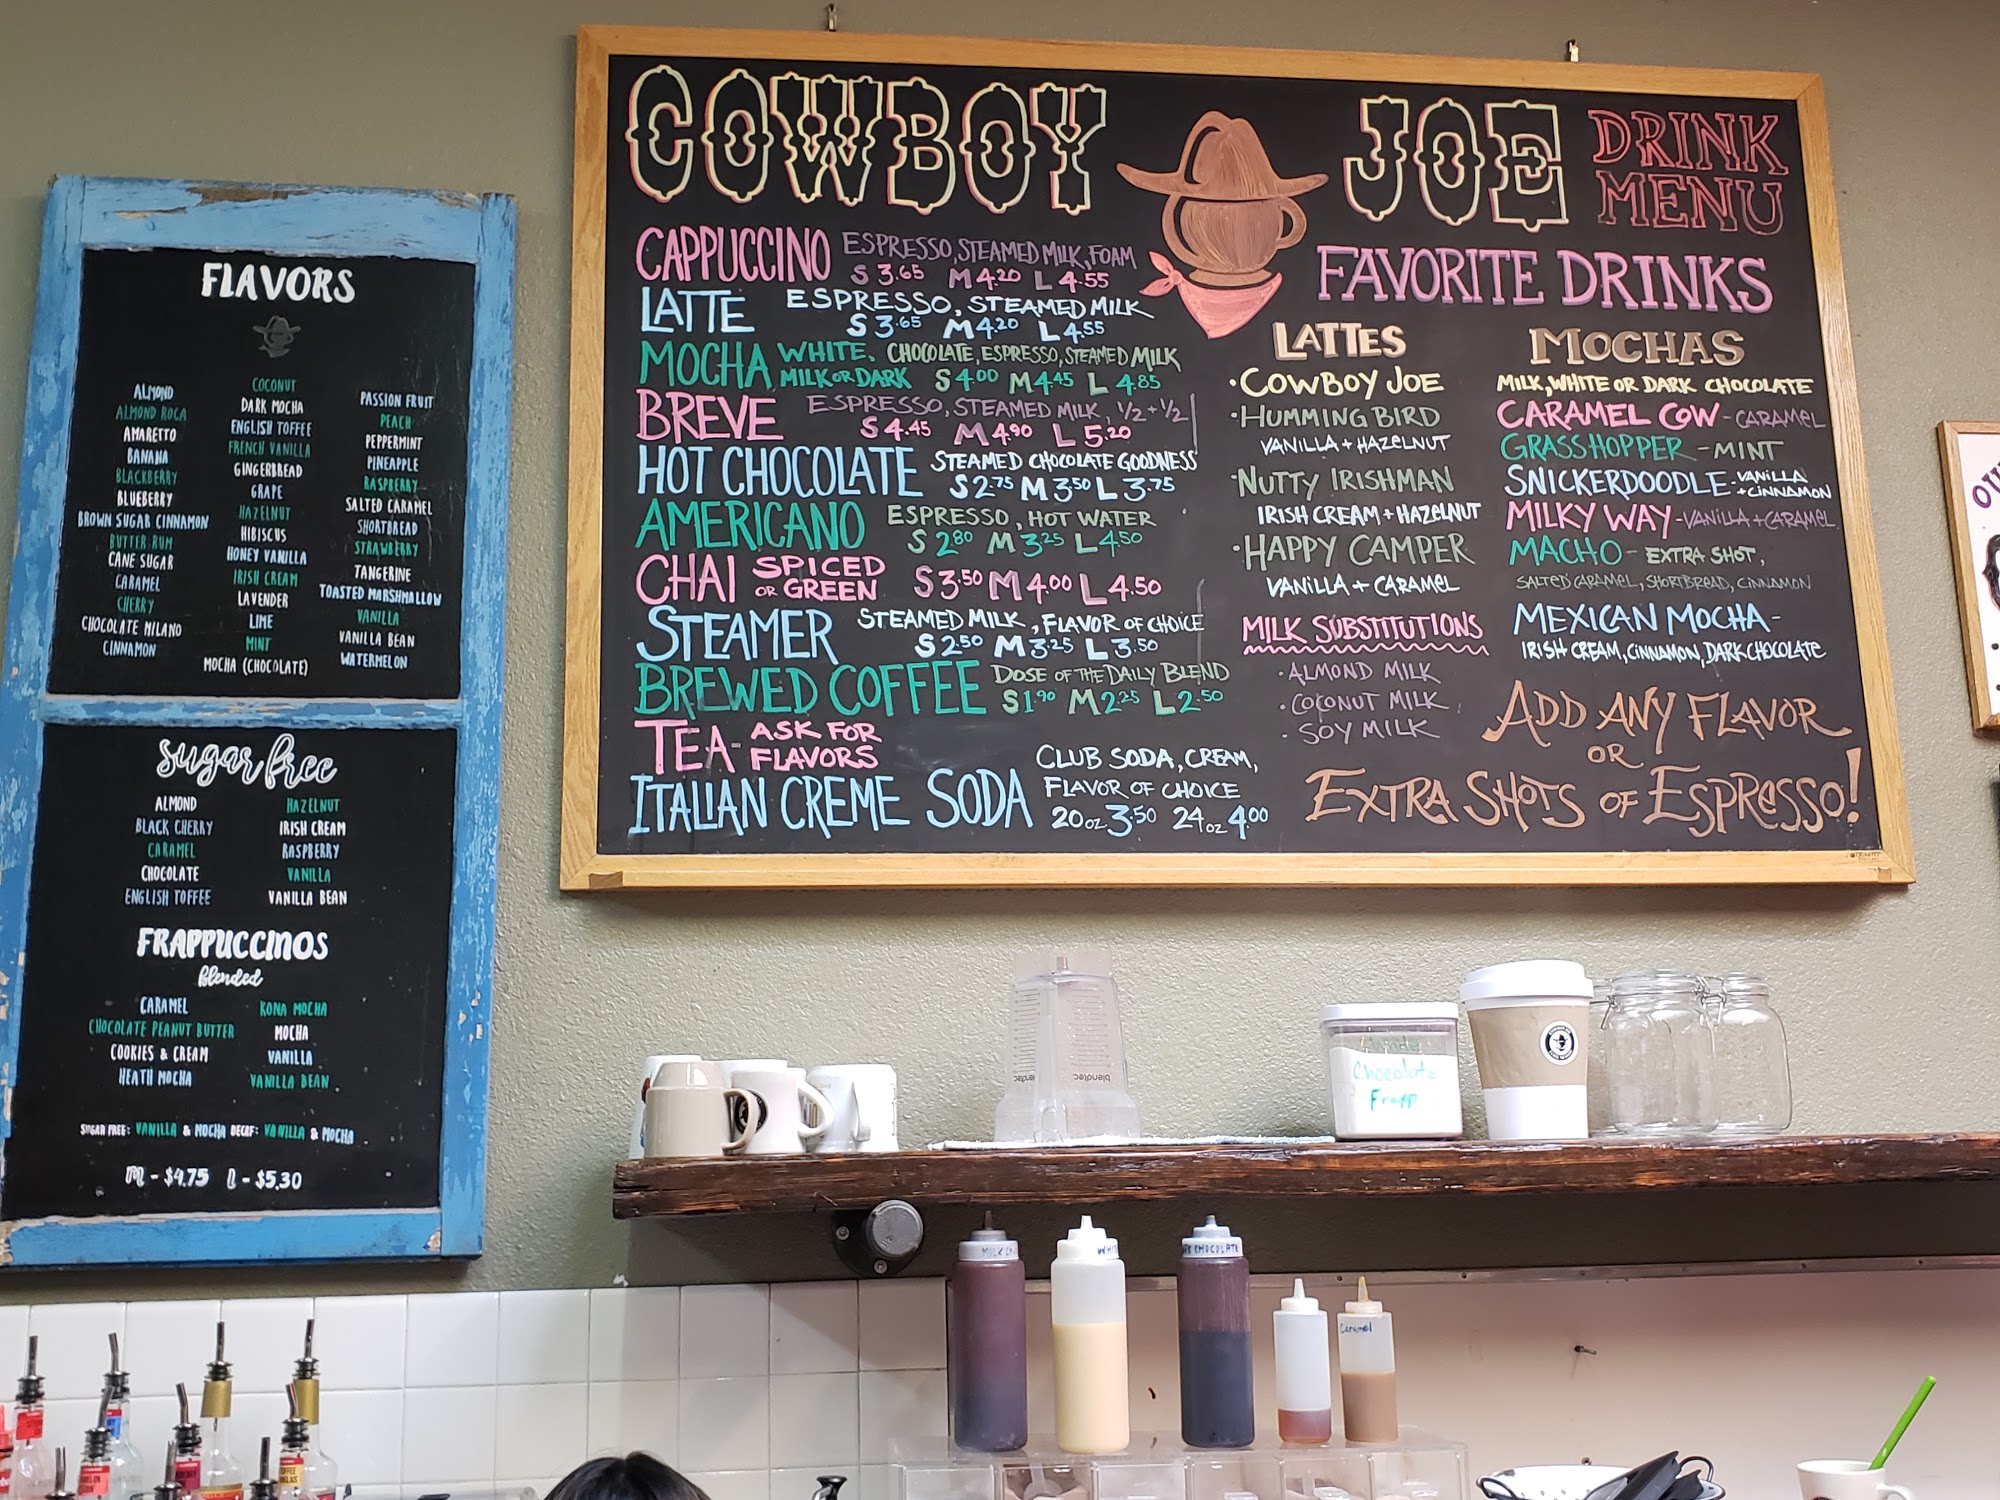 FLAVORS
ALMOND
ALMOND ROCA
AMARETTO
BANANA
BLACKBERRY
BLUEBERRY
BROWN SUGAR CINNAMON
BUTTER RUM
CANE SUGAR
CARAMEL
CHERRY
CHOCOLATE MILANO
CINNAMON
COCONUT
DARK MOCHA
ENGLISH TOFFEE
FRENCH VANILLA
GINGERBREAD
GRAPE
HAZELNUT
HIBISCUS
HONEY VANILLA
IRISH CREAM
LAVENDER
LIME
MINT
MOCHA (CHOCOLATE)
PASSION FRUIT
PEACH
PEPPERMINT
PINEAPPLE
RASPBERRY
SALTED CARAMEL
SHORTBREAD
STRAWBERRY
TANGERINE
TOASTED MARSHMALLOW
VANILLA
VANILLA BEAN
WATERMELON
sugar free
ALMOND
BLACK CHERRY
CARAMEL
CHOCOLATE
ENGLISH TOFFEE
HAZELNUT
IRISH CREAM
RASPBERRY
VANILLA
VANILLA BEAN
FRAPPUCCINOS
blended
CARAMEL
CHOCOLATE PEANUT BUTTER
COOKIES & CREAM
HEATH MOCHA
KONA MOCHA
MOCHA
VANILLA
VANILLA BEAN
SUGAR FREE: VANILLA & MOCHA DECAF: VANILLA & MOCHA
M - $4.75 L - $5.30
COWBOY JOE
DRINK
MENU
CAPPUCCINO ESPRESSO, STEAMED MILK, FOAM
S 3.65 M 4.20 L 4.55
LATTE ESPRESSO, STEAMED MILK
S 3.65 M 4.20 L 4.55
MOCHA WHITE, CHOCOLATE, ESPRESSO, STEAMED MILK
MILK OR DARK S 4.00 M 4.45 L 4.85
BREVE ESPRESSO, STEAMED MILK, 1/2 + 1/2
S 4.45 M 4.90 L 5.20
HOT CHOCOLATE STEAMED CHOCOLATE GOODNESS
S 2.75 M 3.50 L 3.75
AMERICANO ESPRESSO, HOT WATER
S 2.80 M 3.25 L 4.50
CHAI SPICED OR GREEN S 3.50 M 4.00 L 4.50
STEAMER STEAMED MILK, FLAVOR OF CHOICE
S 2.50 M 3.25 L 3.50
BREWED COFFEE DOSE OF THE DAILY BLEND
S 1.90 M 2.25 L 2.50
TEA - ASK FOR FLAVORS
ITALIAN CREME SODA CLUB SODA, CREAM,
FLAVOR OF CHOICE
20 oz 3.50 24 oz 4.00
FAVORITE DRINKS
LATTES
· COWBOY JOE
· HUMMING BIRD
VANILLA + HAZELNUT
· NUTTY IRISHMAN
IRISH CREAM + HAZELNUT
· HAPPY CAMPER
VANILLA + CARAMEL
MILK SUBSTITUTIONS
· ALMOND MILK
· COCONUT MILK
· SOY MILK
MOCHAS
MILK, WHITE OR DARK CHOCOLATE
CARAMEL COW - CARAMEL
GRASSHOPPER - MINT
SNICKERDOODLE - VANILLA
+ CINNAMON
MILKY WAY - VANILLA + CARAMEL
MACHO - EXTRA SHOT,
SALTED CARAMEL, SHORTBREAD, CINNAMON
MEXICAN MOCHA -
IRISH CREAM, CINNAMON, DARK CHOCOLATE
ADD ANY FLAVOR
OR
EXTRA SHOTS OF ESPRESSO!
blendtec
Chocolate
Frapp
CHOCOLATE
Caramel